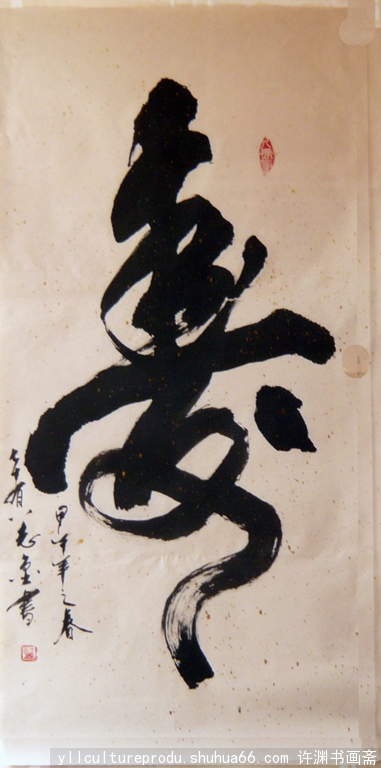 壽
甲午年之春
有八志書
yllcultureprodu.shuhua66.com 许渊书画斋